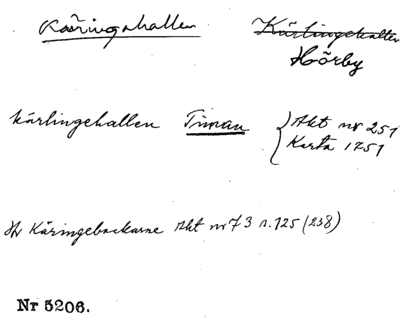 Käringahallen Kärlingehallen
Hörby
kärlingehallen Timan Akt nr 251
Karta 1751
Käringebackarne Akt nr 73 s. 125 (238)
Nr 5206.